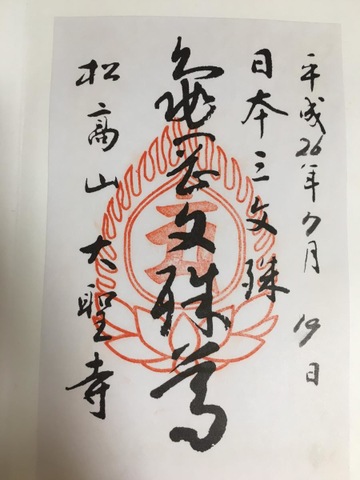 平成26年9月19日
日本三文珠
亀岡文殊尊
松高山大聖寺